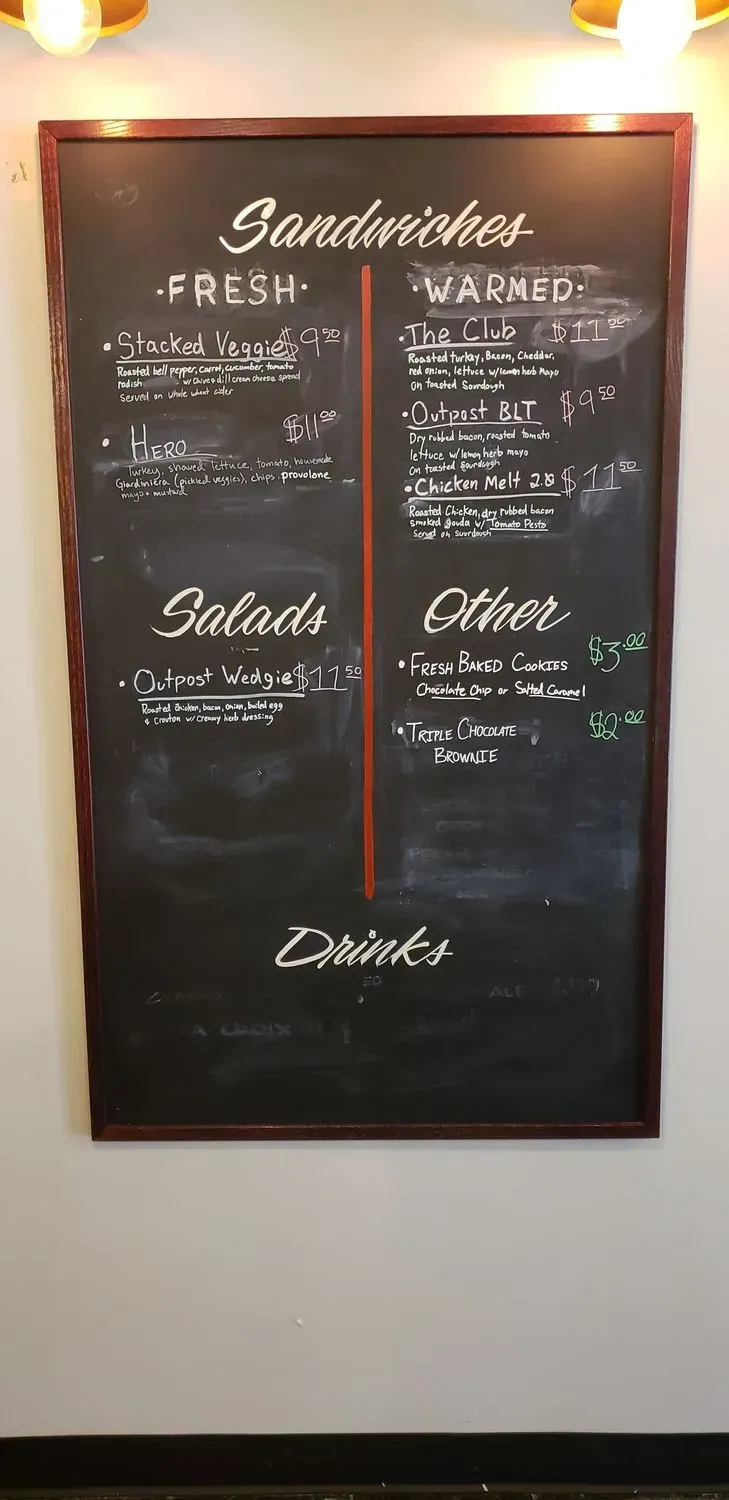 Sandwiches
·FRESH·
• Stacked Veggie $9 50
Roasted bell pepper, carrot, cucumber, tomato
radish w/ chive & dill cream cheese spread
served on whole wheat cider
• HERO $11 00
Turkey, shaved lettuce, tomato, housemade
Giardiniera (pickled veggies), chips, provolone
mayo + mustard
·WARMED·
• The Club $11 50
Roasted turkey, Bacon, Cheddar,
red onion, lettuce w/ lemon herb Mayo
on toasted Sourdough
• Outpost BLT $9 50
Dry rubbed bacon, roasted tomato
lettuce w/ lemon herb mayo
on toasted Sourdough
• Chicken Melt 2.0 $11 50
Roasted Chicken, dry rubbed bacon
smoked gouda w/ Tomato Pesto
Served on Sourdough
Salads
• Outpost Wedgie $11 50
Roasted chicken, bacon, onion, boiled egg
& Crouton w/ Creamy herb dressing
Other
• FRESH BAKED COOKIES $3.00
Chocolate Chip or Salted Caramel
• TRIPLE CHOCOLATE $2.00
BROWNIE
Drinks
A CROIX